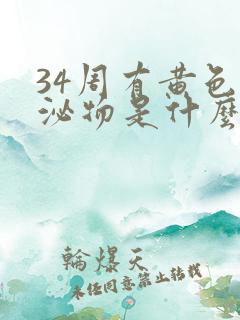 34周有黄色
泌物是什麼
輪爆天
未任同意禁止转载